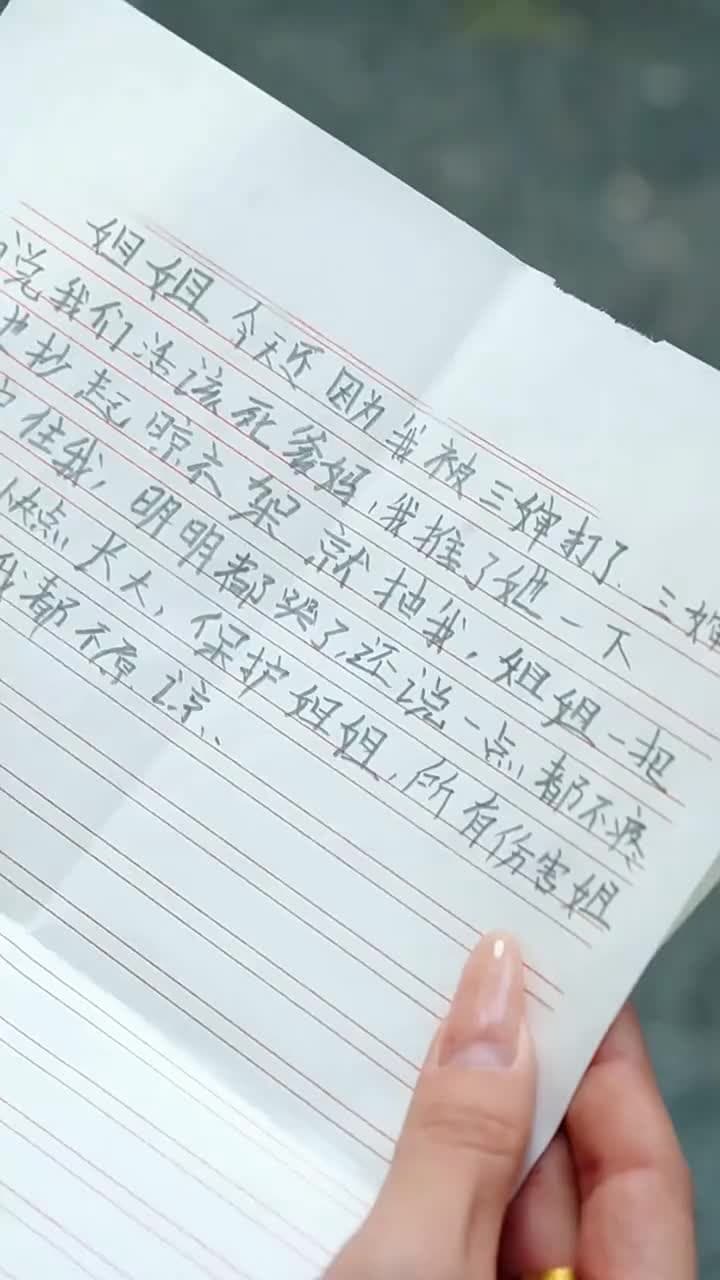 姐姐今天还因为我被三婶打了、三婶
说我们活该死爹妈,我推了她一下
抄起晾衣架就抽我,姐姐一把
住我,明明都哭了,还说一点都不疼
快点长大,保护姐姐,所有伤害姐
我都不原谅、